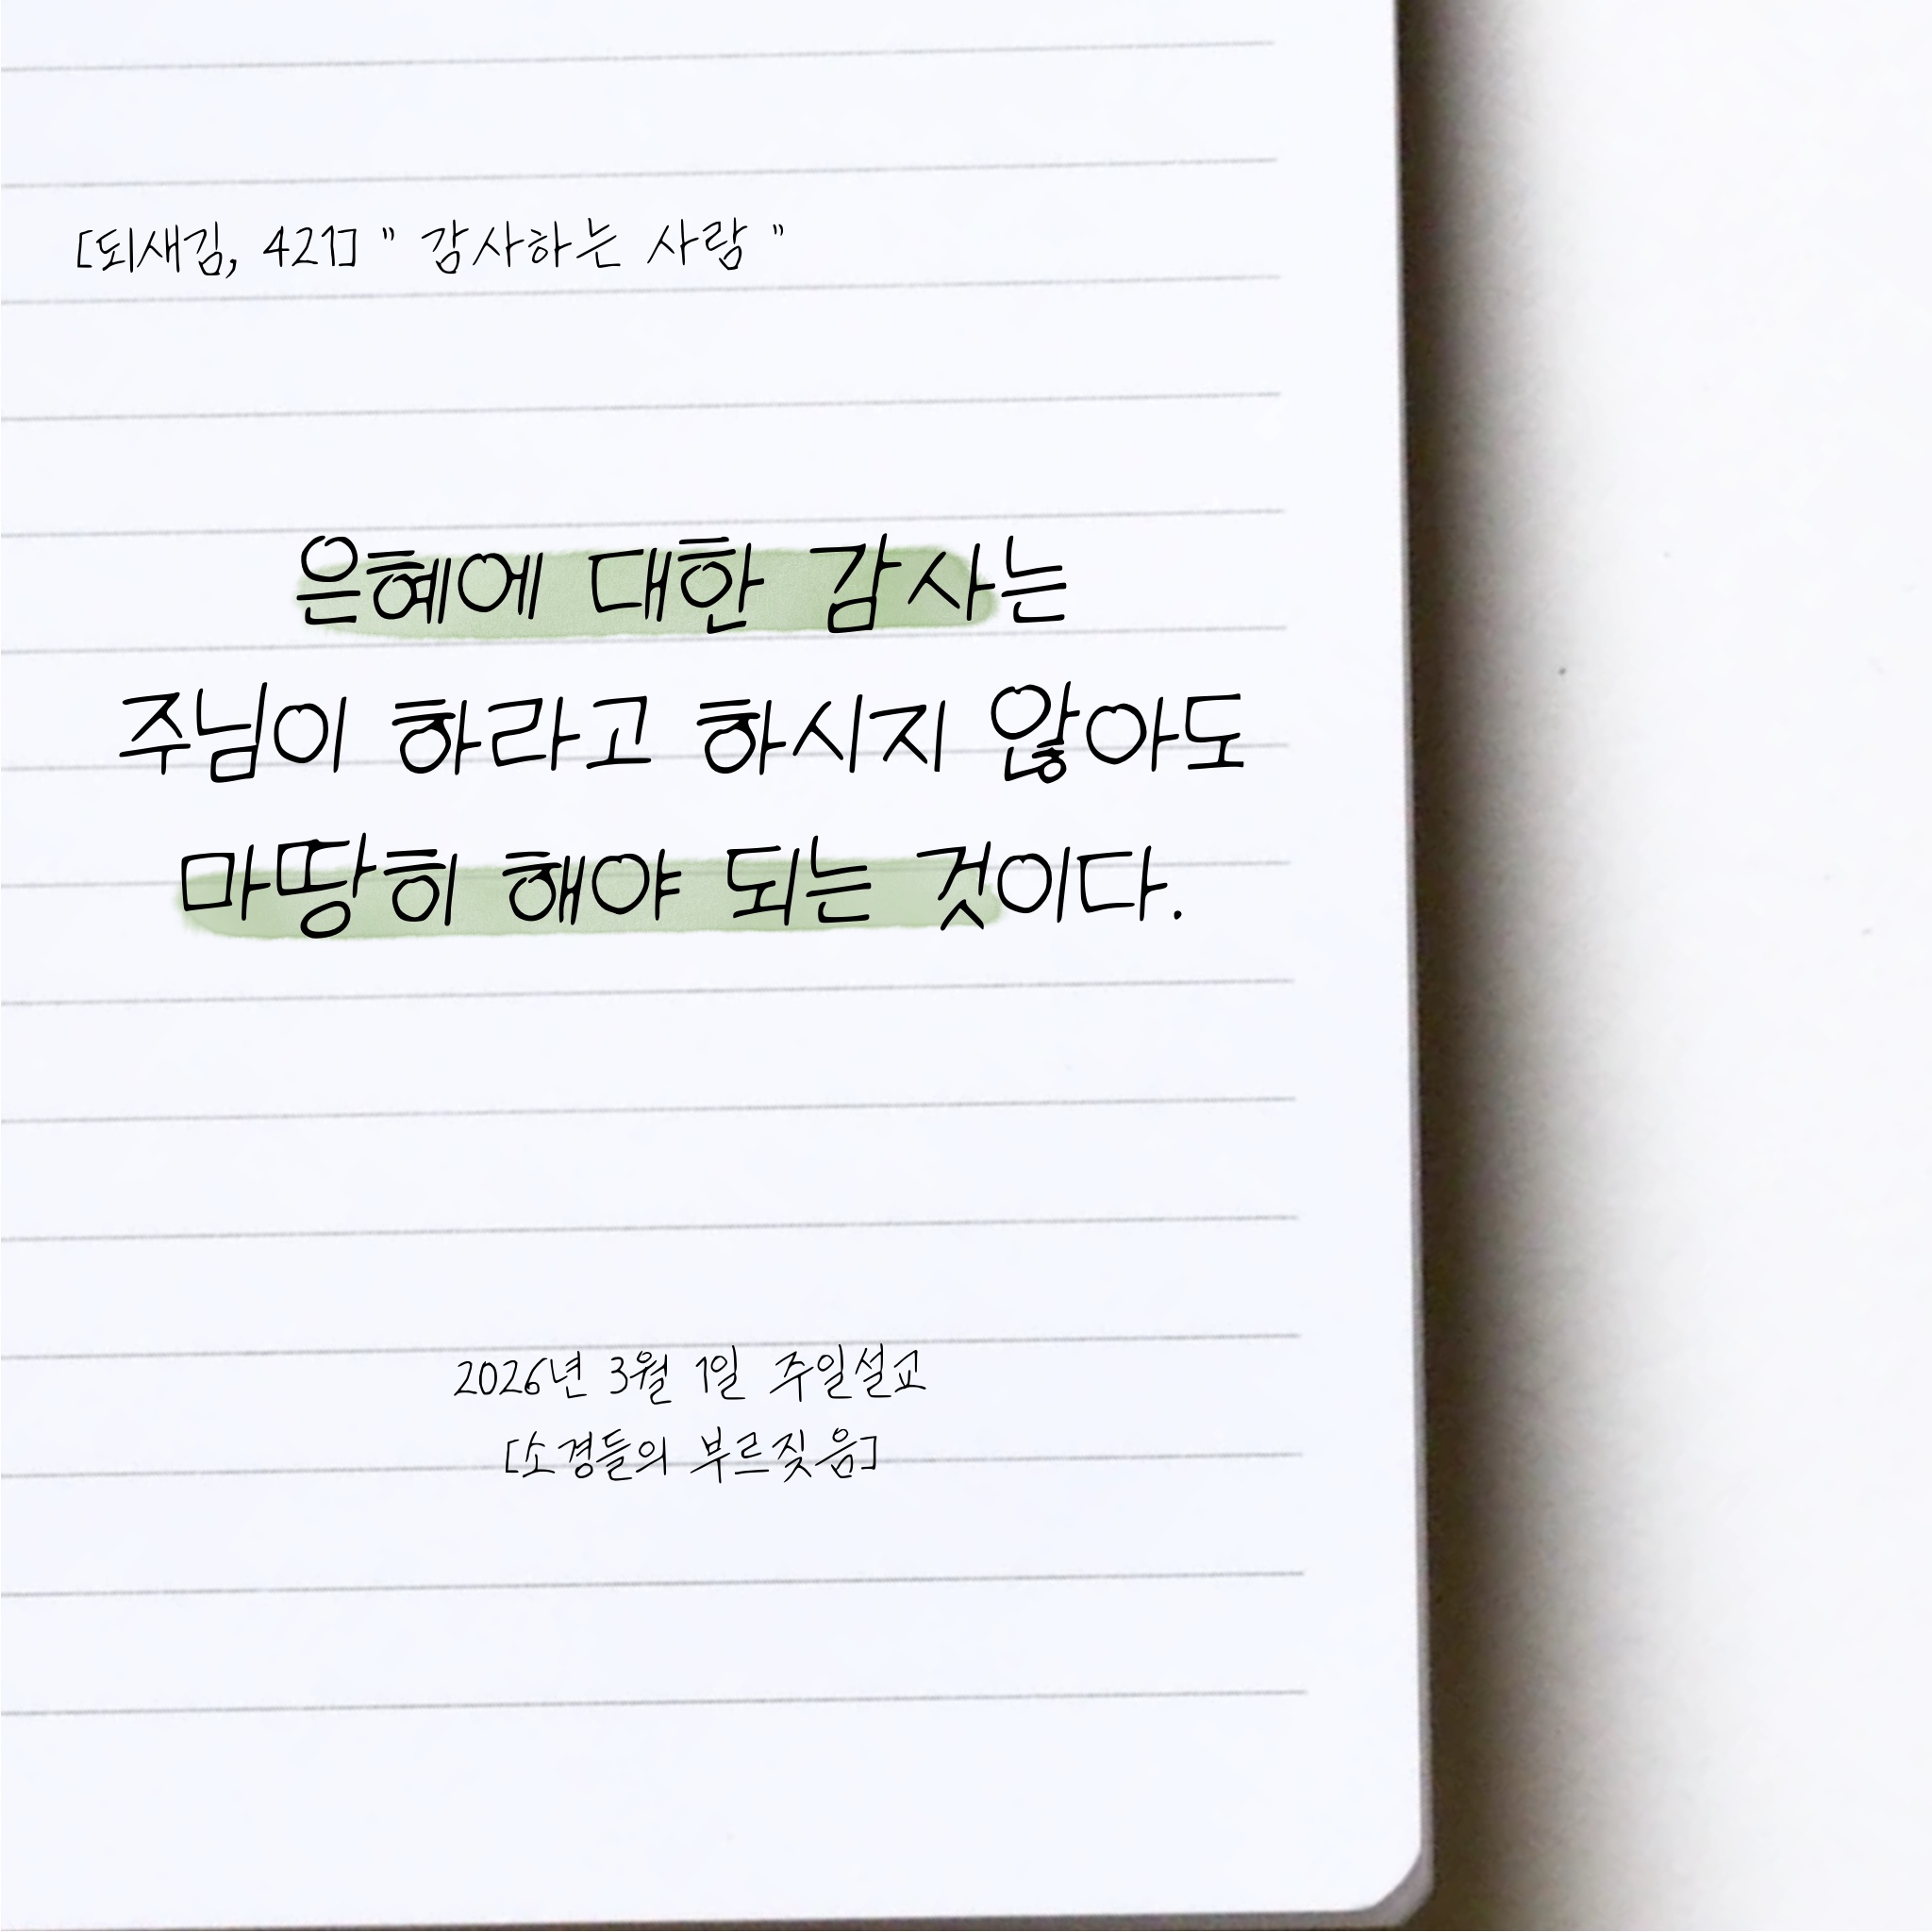 [되새김, 421] " 감사하는 사람 "
은혜에 대한 감사는
주님이 하라고 하시지 않아도
마땅히 해야 되는 것이다.
2026년 3월 1일 주일설교
[소경들의 부르짖음]